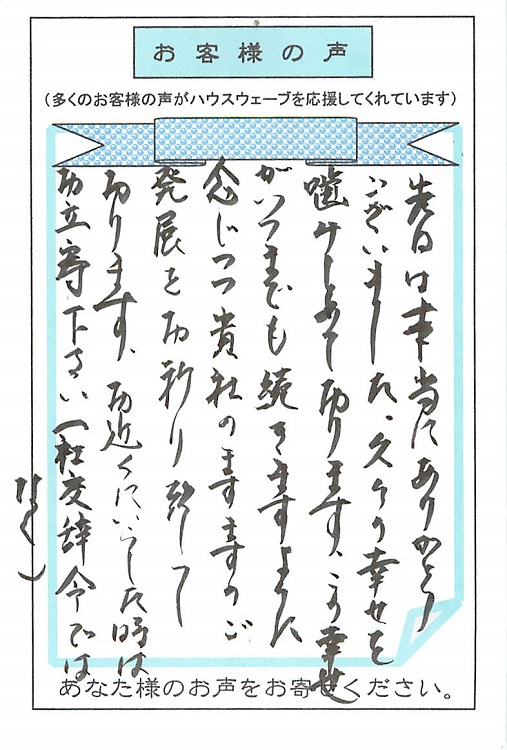 お客様の声
（多くのお客様の声がハウスウェーブを応援してくれています）
先日は本当にありがとう
ございました。久々の幸せを
噛みしめて居ります、この幸せ
がいつまでも続きますように
念じつつ貴社のますますのご
発展をお祈り致して
居ります、お近くにいらした時は
お立寄下さい（社交辞令では
なく）
あなた様のお声をお寄せください。